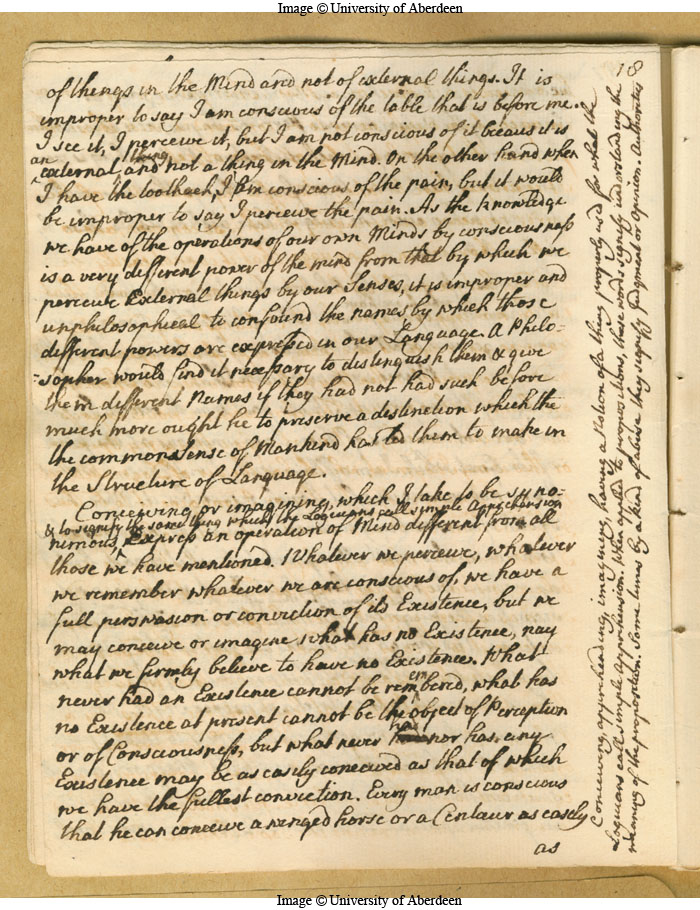 Image © University of Aberdeen
18
of things in the Mind and not of external things. It is
improper to say I am conscious of the table that is before me.
I see it, I perceive it, but I am not conscious of it becaus it is
an external thing and not a thing in the Mind. On the other hand when
I have the toothach, I am conscious of the pain, but it would
be improper to say I perceive the pain. As the knowledge
we have of the operations of our own Minds by consciousness
is a very different power of the mind from that by which we
perceive External things by our Senses, it is improper and
unphilosophical to confound the names by which those
different powers are expressed in our Language. A Philo-
-sopher would find it necessary to distinguish them & give
them different Names if they had not had such before
much more ought he to preserve a distinction which the
the common sense of Mankind has led them to make in
the Structure of Language.
Conceiving or imagining, which I take to be syno-
& to signify the same thing which the Logicians call simple Apprehension
nimous, Express an operation of Mind different from all
those we have mentioned. Whatever we perceive, whatever
we remember whatever we are conscious of, we have a
full perswasion or conviction of its Existence, but we
may conceive or imagine what has no Existence, nay
what we firmly believe to have no Existence. What
never had an Existence cannot be remembered, what has
no Existence at present cannot be the object of Perception
or of Consciousness, but what never had nor has any
Existence may be as easily conceived as that of which
we have the fullest conviction. Every man is conscious
that he can conceive a winged horse or a Centaur as easily
as
Conceiving, apprehending, imagining, having a Notion of a thing properly used for what the
Logicians call simple Apprehension. When applied to propositions, these words signify understanding the
meaning of the proposition. Some times by a kind of abuse they signify Judgment or Opinion. Authorities
Image © University of Aberdeen